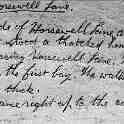 Horsewell Lane.
ds of Horsewell Lane a
stood a thatched hou
acing Horsewell Lane,
the first bay. The walls
thick.
ance right up to the